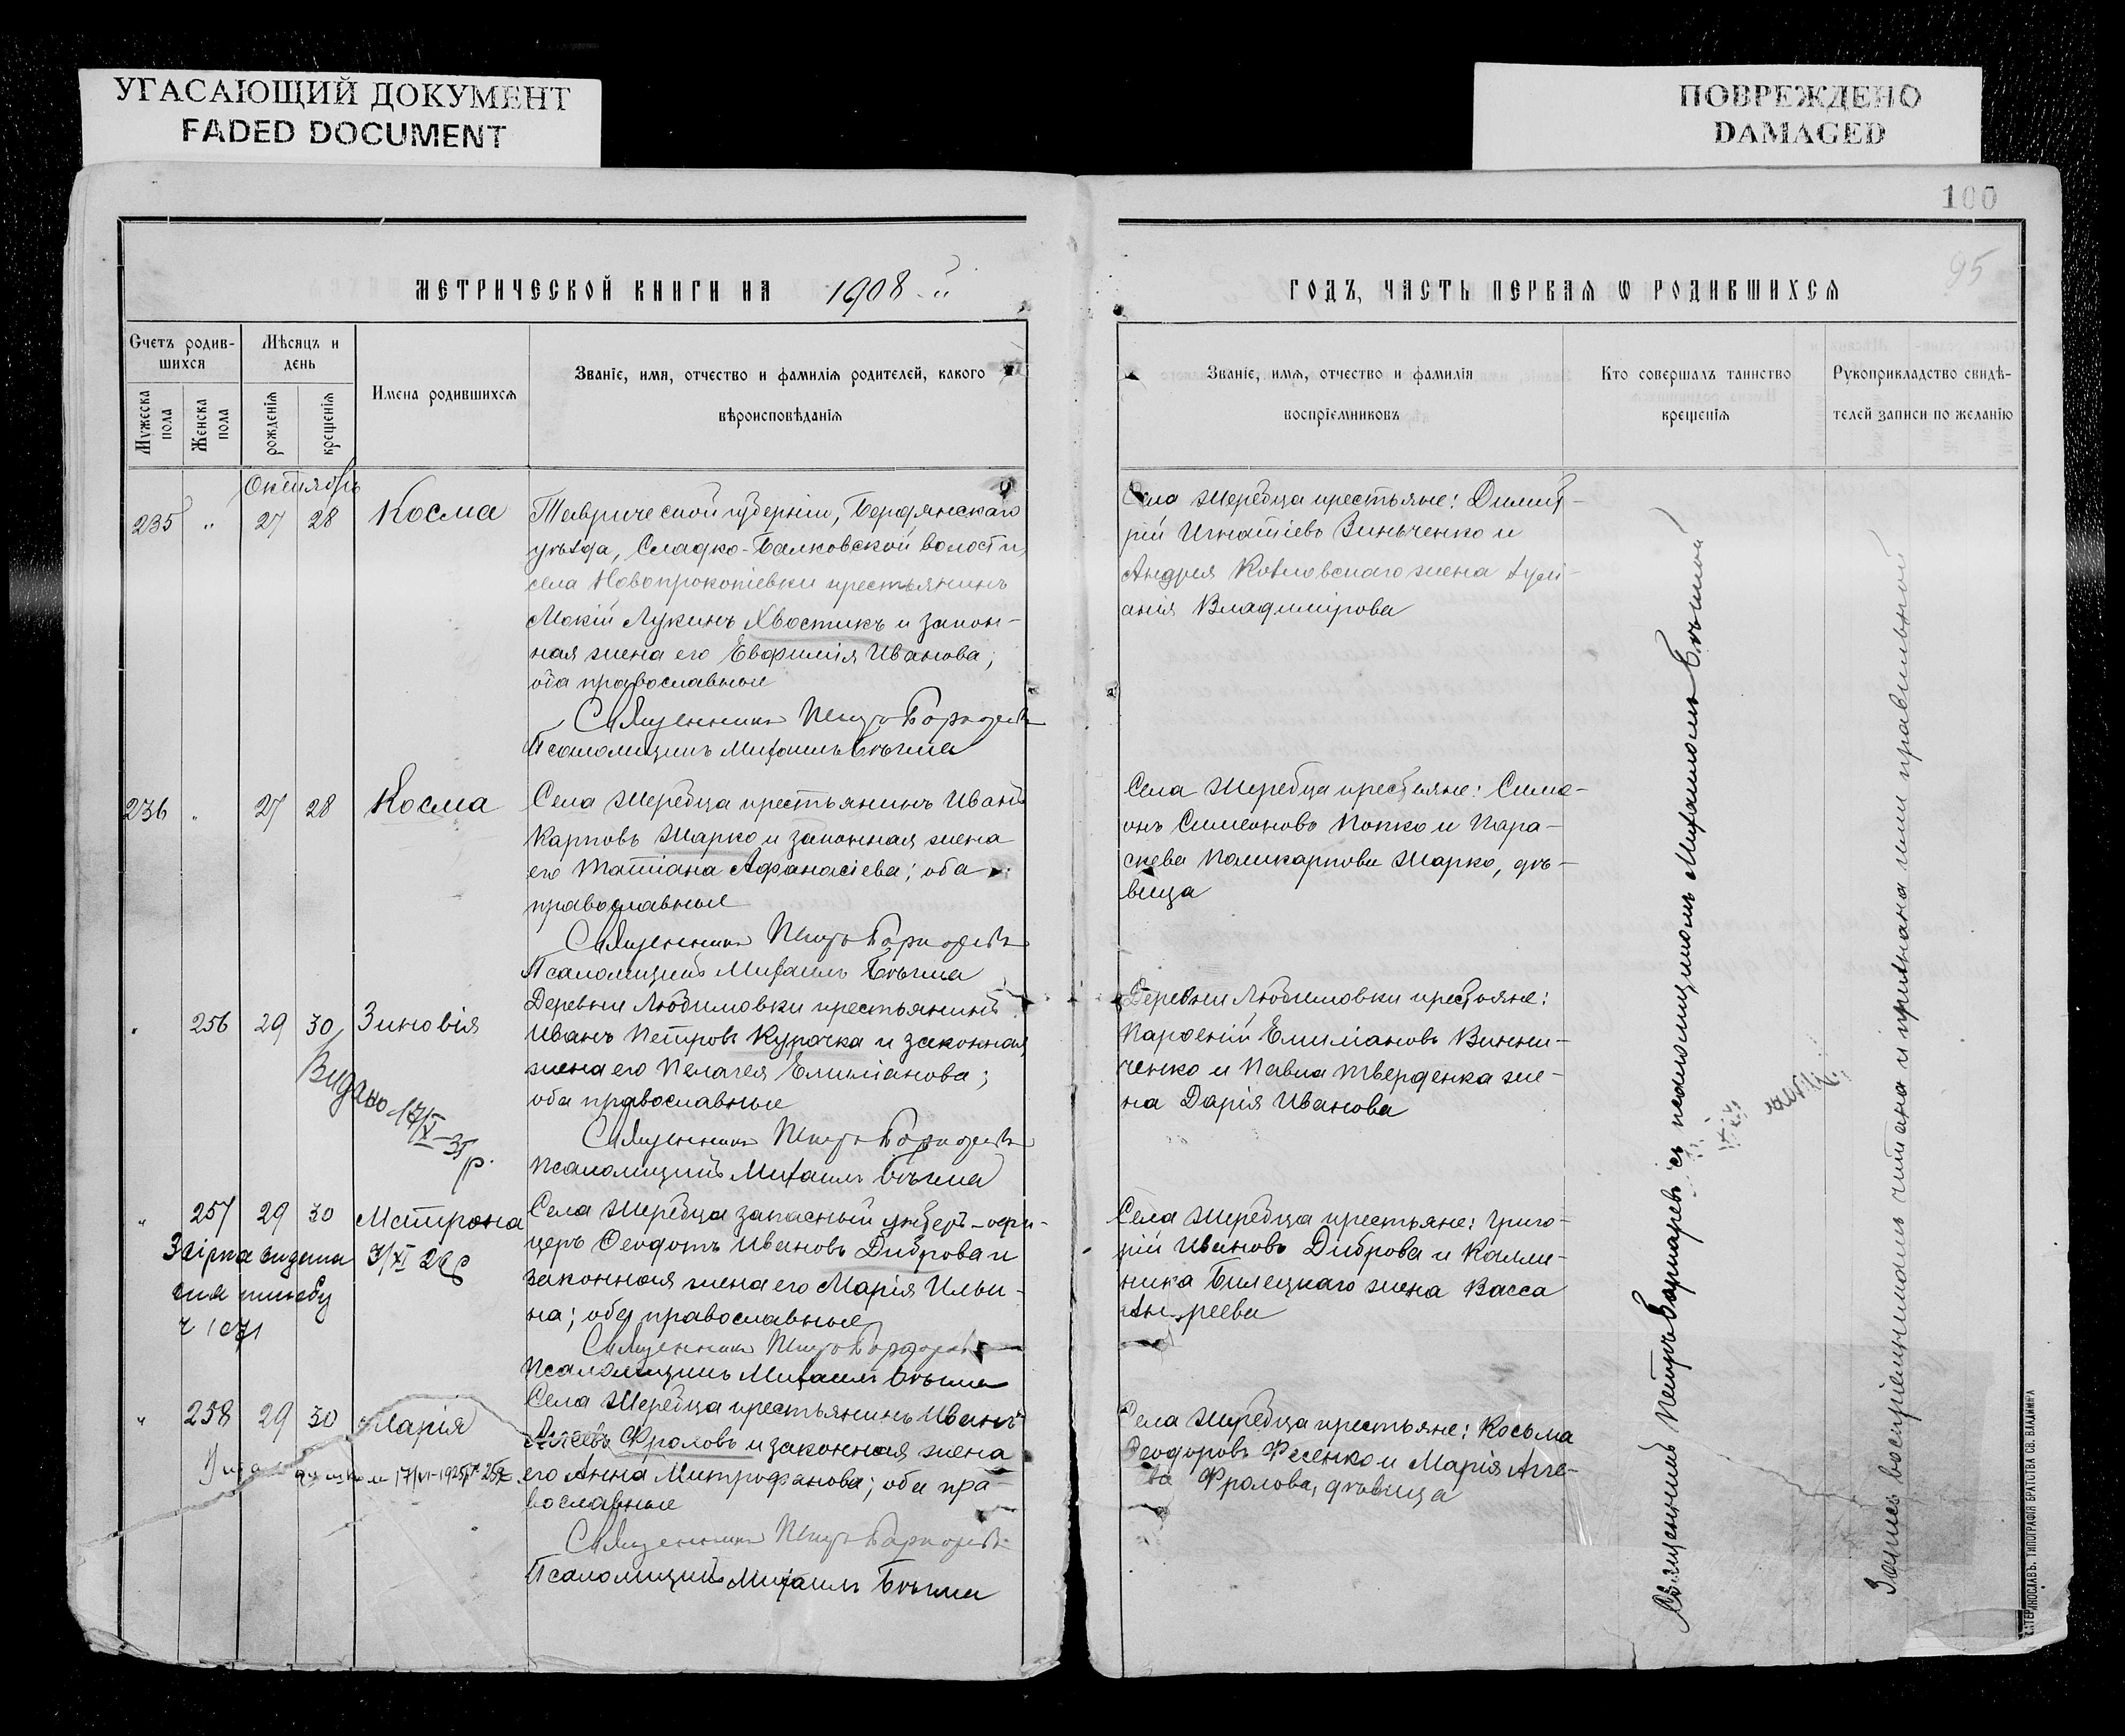 УГАСАЮЩИЙ ДОКУМЕНТ
FADED DOCUMENT
ПОВРЕЖДЕНО
DAMAGED
100
95
МЕТРИЧЕСКОЙ КНИГИ НА 1908
ГОДЪ, ЧАСТЬ ПЕРВАЯ Ѡ РОДИВШИХСЯ
Счетъ родив-
шихся
Мужеска
пола
Женска
пола
Мѣсяцъ и
день
рожденія
крещенія
Имена родившихся
Званіе, имя, отчество и фамилія родителей, какого
вѣроисповѣданія
Званіе, имя, отчество и фамилія
воспріемниковъ
Кто совершалъ таинство
крещенія
Рукоприкладство свидѣ-
телей записи по желанію
Октябрь
235 " 27 28 Косма
Таврической губерніи, Бердянскаго
уѣзда, Сладко-Балковской волости,
села Новопрокопіевки крестьянинъ
Мокій Лукинъ Хвостикъ и закон-
ная жена его Евфимія Иванова;
оба православные
Священникъ Петръ
Псаломщикъ Михаилъ
Села Жеребца крестьяне: Димит-
рій Игнатіевъ Зинченко и
Андрея Козловскаго жена Іулі-
анія Владимірова
236 " 27 28 Косма
Села Жеребца крестьянинъ Иванъ
Карповъ Жарко и законная жена
его Татіана Афанасіева; оба
православные
Священникъ Петръ
Псаломщикъ Михаилъ
Села Жеребца крестьяне: Симе-
онъ Симеоновъ Попко и Пара-
скева Поликарпова Жарко, дѣ-
вица
" 256 29 30 Зиновія
Видано 17/X-35 р.
Деревни Любимовки крестьянинъ
Иванъ Петровъ Курочка и законная
жена его Пелагея Емиліанова;
оба православные
Священникъ Петръ
Псаломщикъ Михаилъ
Деревни Любимовки крестьяне:
Парѳеній Емиліановъ Винни-
ченко и Павла Тверденка же-
на Дарія Иванова
" 257 29 30 Матрона
7/XI 26
Села Жеребца запасный унтеръ-офи-
церъ Ѳеодотъ Ивановъ Диброва и
законная жена его Марія Ильи-
на; оба православные
Священникъ Петръ
Псаломщикъ Михаилъ
Села Жеребца крестьяне: Григо-
рій Ивановъ Диброва и Калли-
ника Билецкаго жена Васса
Андреева
" 258 29 30 Марія
Села Жеребца крестьянинъ Иванъ
Аггеевъ Фроловъ и законная жена
его Анна Митрофанова; оба пра-
вославные
Священникъ Петръ
Псаломщикъ Михаилъ
Села Жеребца крестьяне: Косьма
Ѳеодоровъ Фесенко и Марія Агге-
ва Фролова, дѣвица
Священникъ Петръ съ псаломщикомъ Михаиломъ
Запись воспріемниками читана и признана ими правильной
ЕКАТЕРИНОСЛАВЪ. ТИПОГРАФІЯ БРАТСТВА СВ. ВЛАДИМІРА